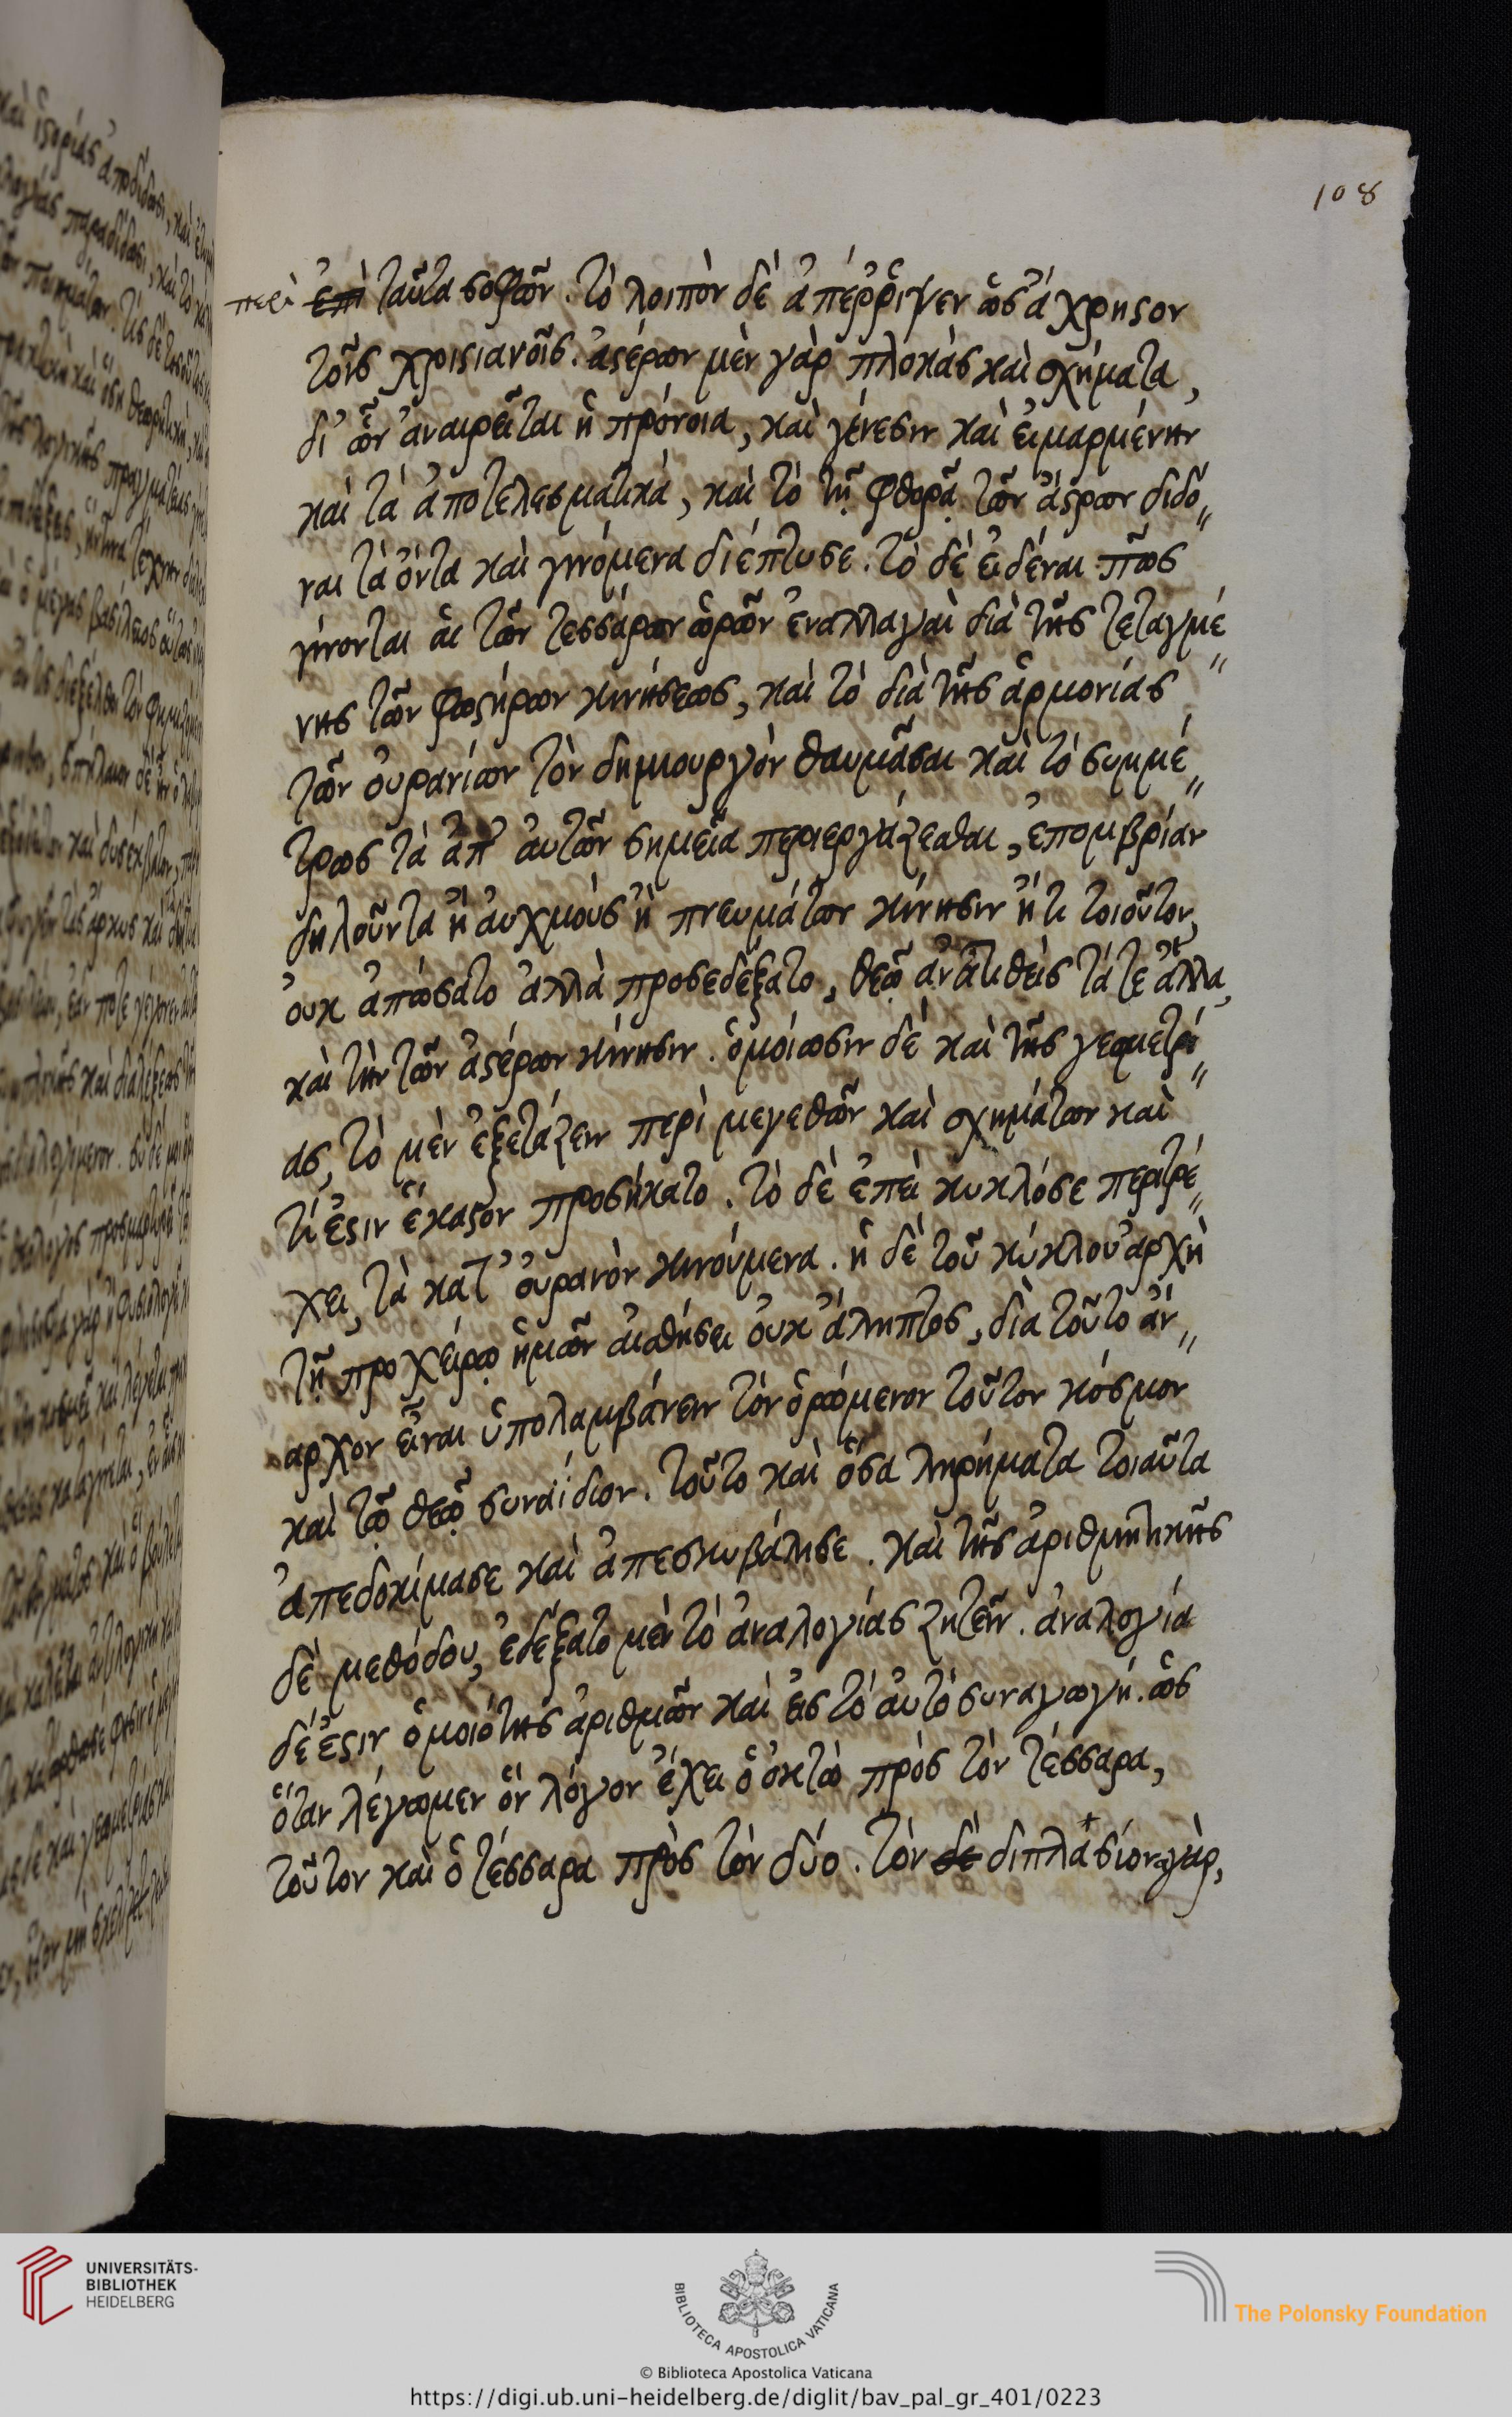 108
περὶ ἐπὶ ταῦτα σοφῶν. τὸ λοιπὸν δὲ ἀπέῤῥιψεν ὡς ἄχρηστον
τοῖς χριστιανοῖς. ἀστέρων μὲν γὰρ πλοκὰς καὶ σχήματα,
δι' ὧν ἀναιρεῖται ἡ πρόνοια, καὶ γένεσιν καὶ εἱμαρμένην
καὶ τὰ ἀποτελεσματικά, καὶ τὸ τῇ φθορᾷ τῶν ἄστρων διδό
ναι τὰ ὄντα καὶ γινόμενα διέπτυσε. τὸ δὲ εἰδέναι πῶς
γίνονται αἱ τῶν τεσσάρων ὡρῶν ἐναλλαγαὶ διὰ τῆς τεταγμέ
νης τῶν φωστήρων κινήσεως, καὶ τὸ διὰ τῆς ἁρμονίας
τῶν οὐρανίων τὸν δημιουργὸν θαυμᾶσαι καὶ τὸ συμμέ
τρως τὰ ἀπ' αὐτῶν σημεῖα περιεργάζεσθαι, ἐπομβρίαν
δηλοῦντα ἢ αὐχμοὺς ἢ πνευμάτων κίνησιν ἤ τι τοιοῦτον,
οὐκ ἀπώσατο ἀλλὰ προσεδέξατο, θεῷ ἀνατιθεὶς τά τε ἄλλα,
καὶ τὴν τῶν ἀστέρων κίνησιν. ὁμοίωσιν δὲ καὶ τῆς γεωμετρί
ας, τὸ μὲν ἐξετάζειν περὶ μεγεθῶν καὶ σχημάτων καὶ
τί ἐστιν ἕκαστον προσήκατο. τὸ δὲ ἐπεὶ κυκλόσε περιτρέ
χει, τὰ κατ' οὐρανὸν κινούμενα. ἡ δὲ τοῦ κύκλου ἀρχὴ
τῇ προχείρῳ ἡμῶν αἰσθήσει οὐκ ἄληπτος, διὰ τοῦτο ἄν
αρχον εἶναι ὑπολαμβάνειν τὸν ὁρώμενον τοῦτον κόσμον
καὶ τῷ θεῷ συναΐδιον. τοῦτο καὶ ὅσα ληρήματα τοιαῦτα
ἀπεδοκίμασε καὶ ἀπεσκυβάλισε. καὶ τῆς ἀριθμητικῆς
δὲ μεθόδου, ἐδέξατο μὲν τὸ ἀναλογίας ζητεῖν. ἀναλογία
δέ ἐστιν ὁμοιότης ἀριθμῶν καὶ εἰς τὸ αὐτὸ συναγωγή. ὡς
ὅταν λέγωμεν ὃν λόγον ἔχει ὁ ὀκτὼ πρὸς τὸν τέσσαρα,
τοῦτον καὶ ὁ τέσσαρα πρὸς τὸν δύο. τὸν δὲ διπλασίονα γὰρ,
UNIVERSITÄTS-
BIBLIOTHEK
HEIDELBERG
BIBLIOTECA APOSTOLICA VATICANA
The Polonsky Foundation
© Biblioteca Apostolica Vaticana
https://digi.ub.uni-heidelberg.de/diglit/bav_pal_gr_401/0223